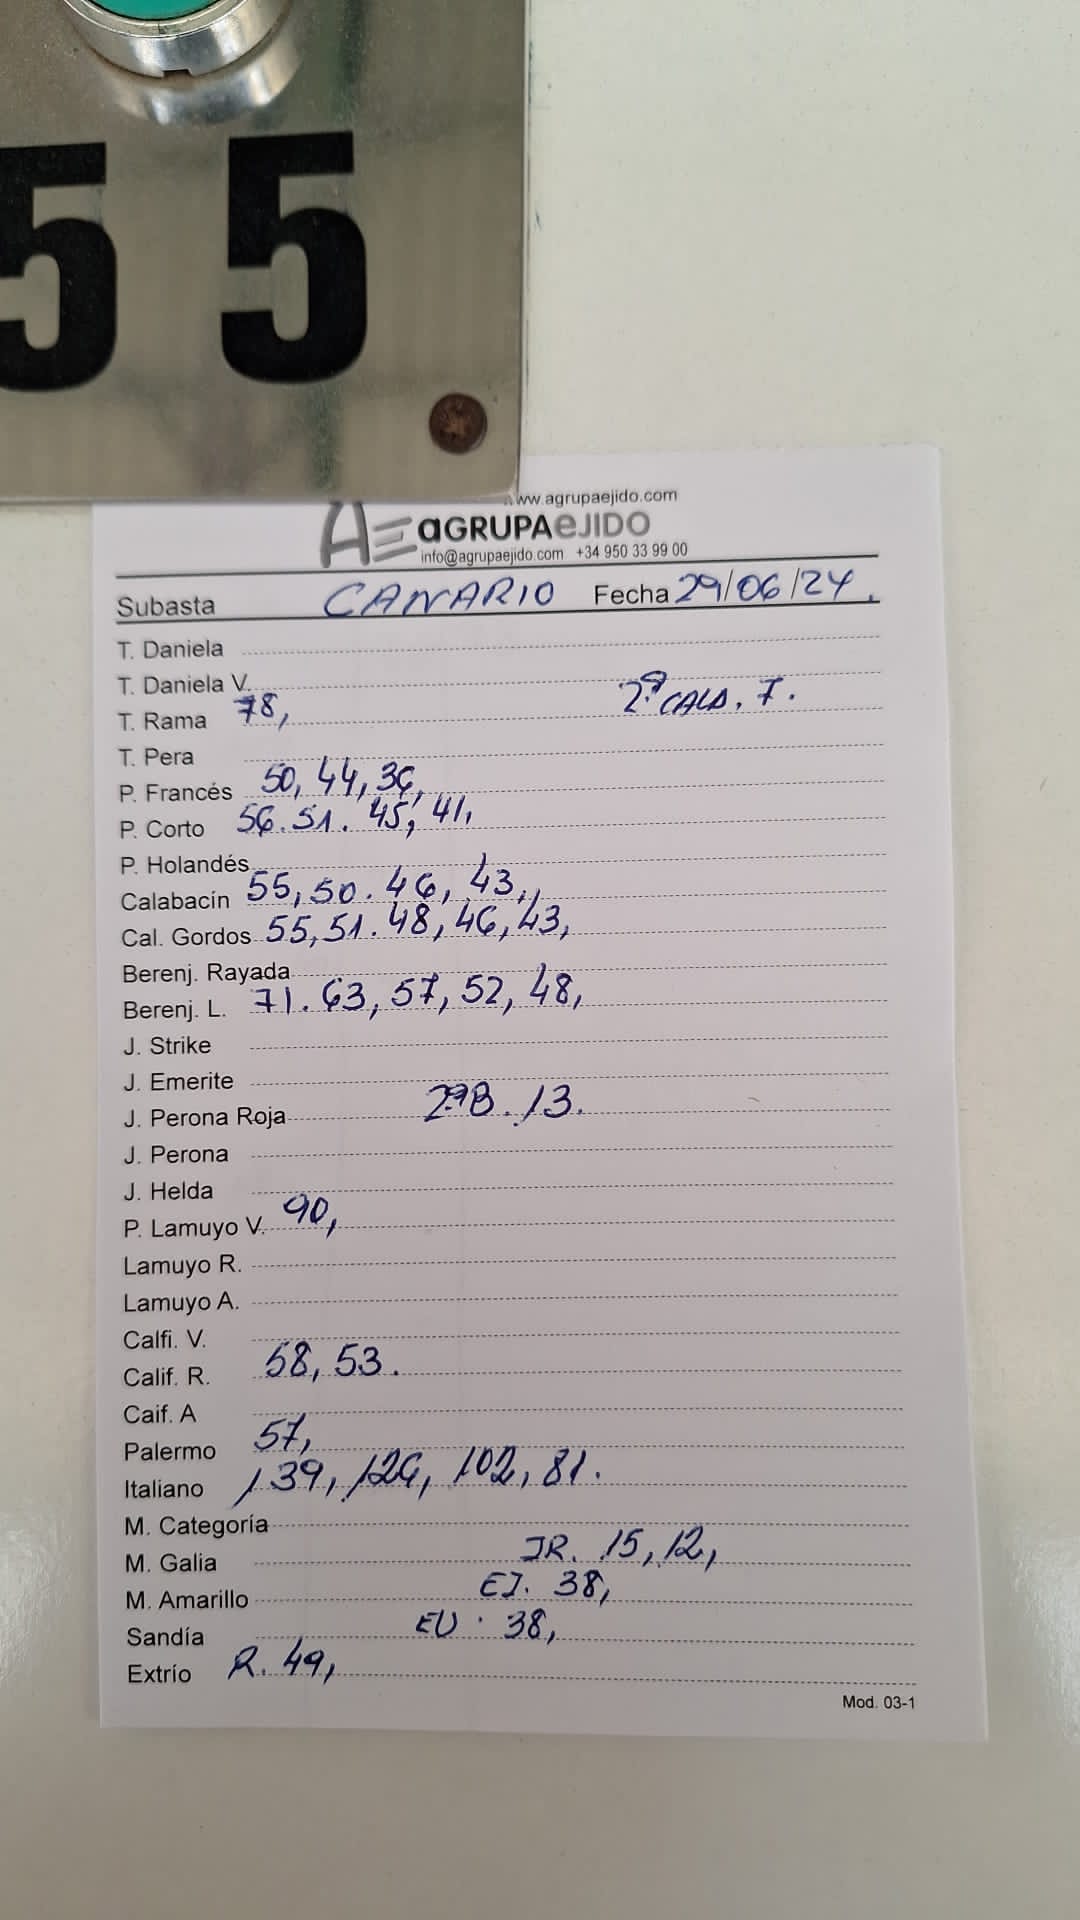 55
www.agrupaejido.com
AE aGRUPAeJIDO
info@agrupaejido.com +34 950 33 99 00
Subasta CANARIO Fecha 29/06/24.
T. Daniela
T. Daniela V.
2ª CALA. 7.
T. Rama 78,
T. Pera
P. Francés 50, 44, 36,
P. Corto 56. 51. 45, 41,
P. Holandés
Calabacín 55, 50. 46, 43,
Cal. Gordos 55, 51. 48, 46, 43,
Berenj. Rayada
Berenj. L. 71. 63, 57, 52, 48,
J. Strike
J. Emerite
J. Perona Roja 2ªB. 13.
J. Perona
J. Helda
P. Lamuyo V. 90,
Lamuyo R.
Lamuyo A.
Calfi. V.
Calif. R. 58, 53.
Caif. A
Palermo 57,
Italiano 139, 126, 102, 81.
M. Categoría
M. Galia JR. 15, 12,
M. Amarillo EJ. 38,
Sandía EU. 38,
Extrío R. 49,
Mod. 03-1